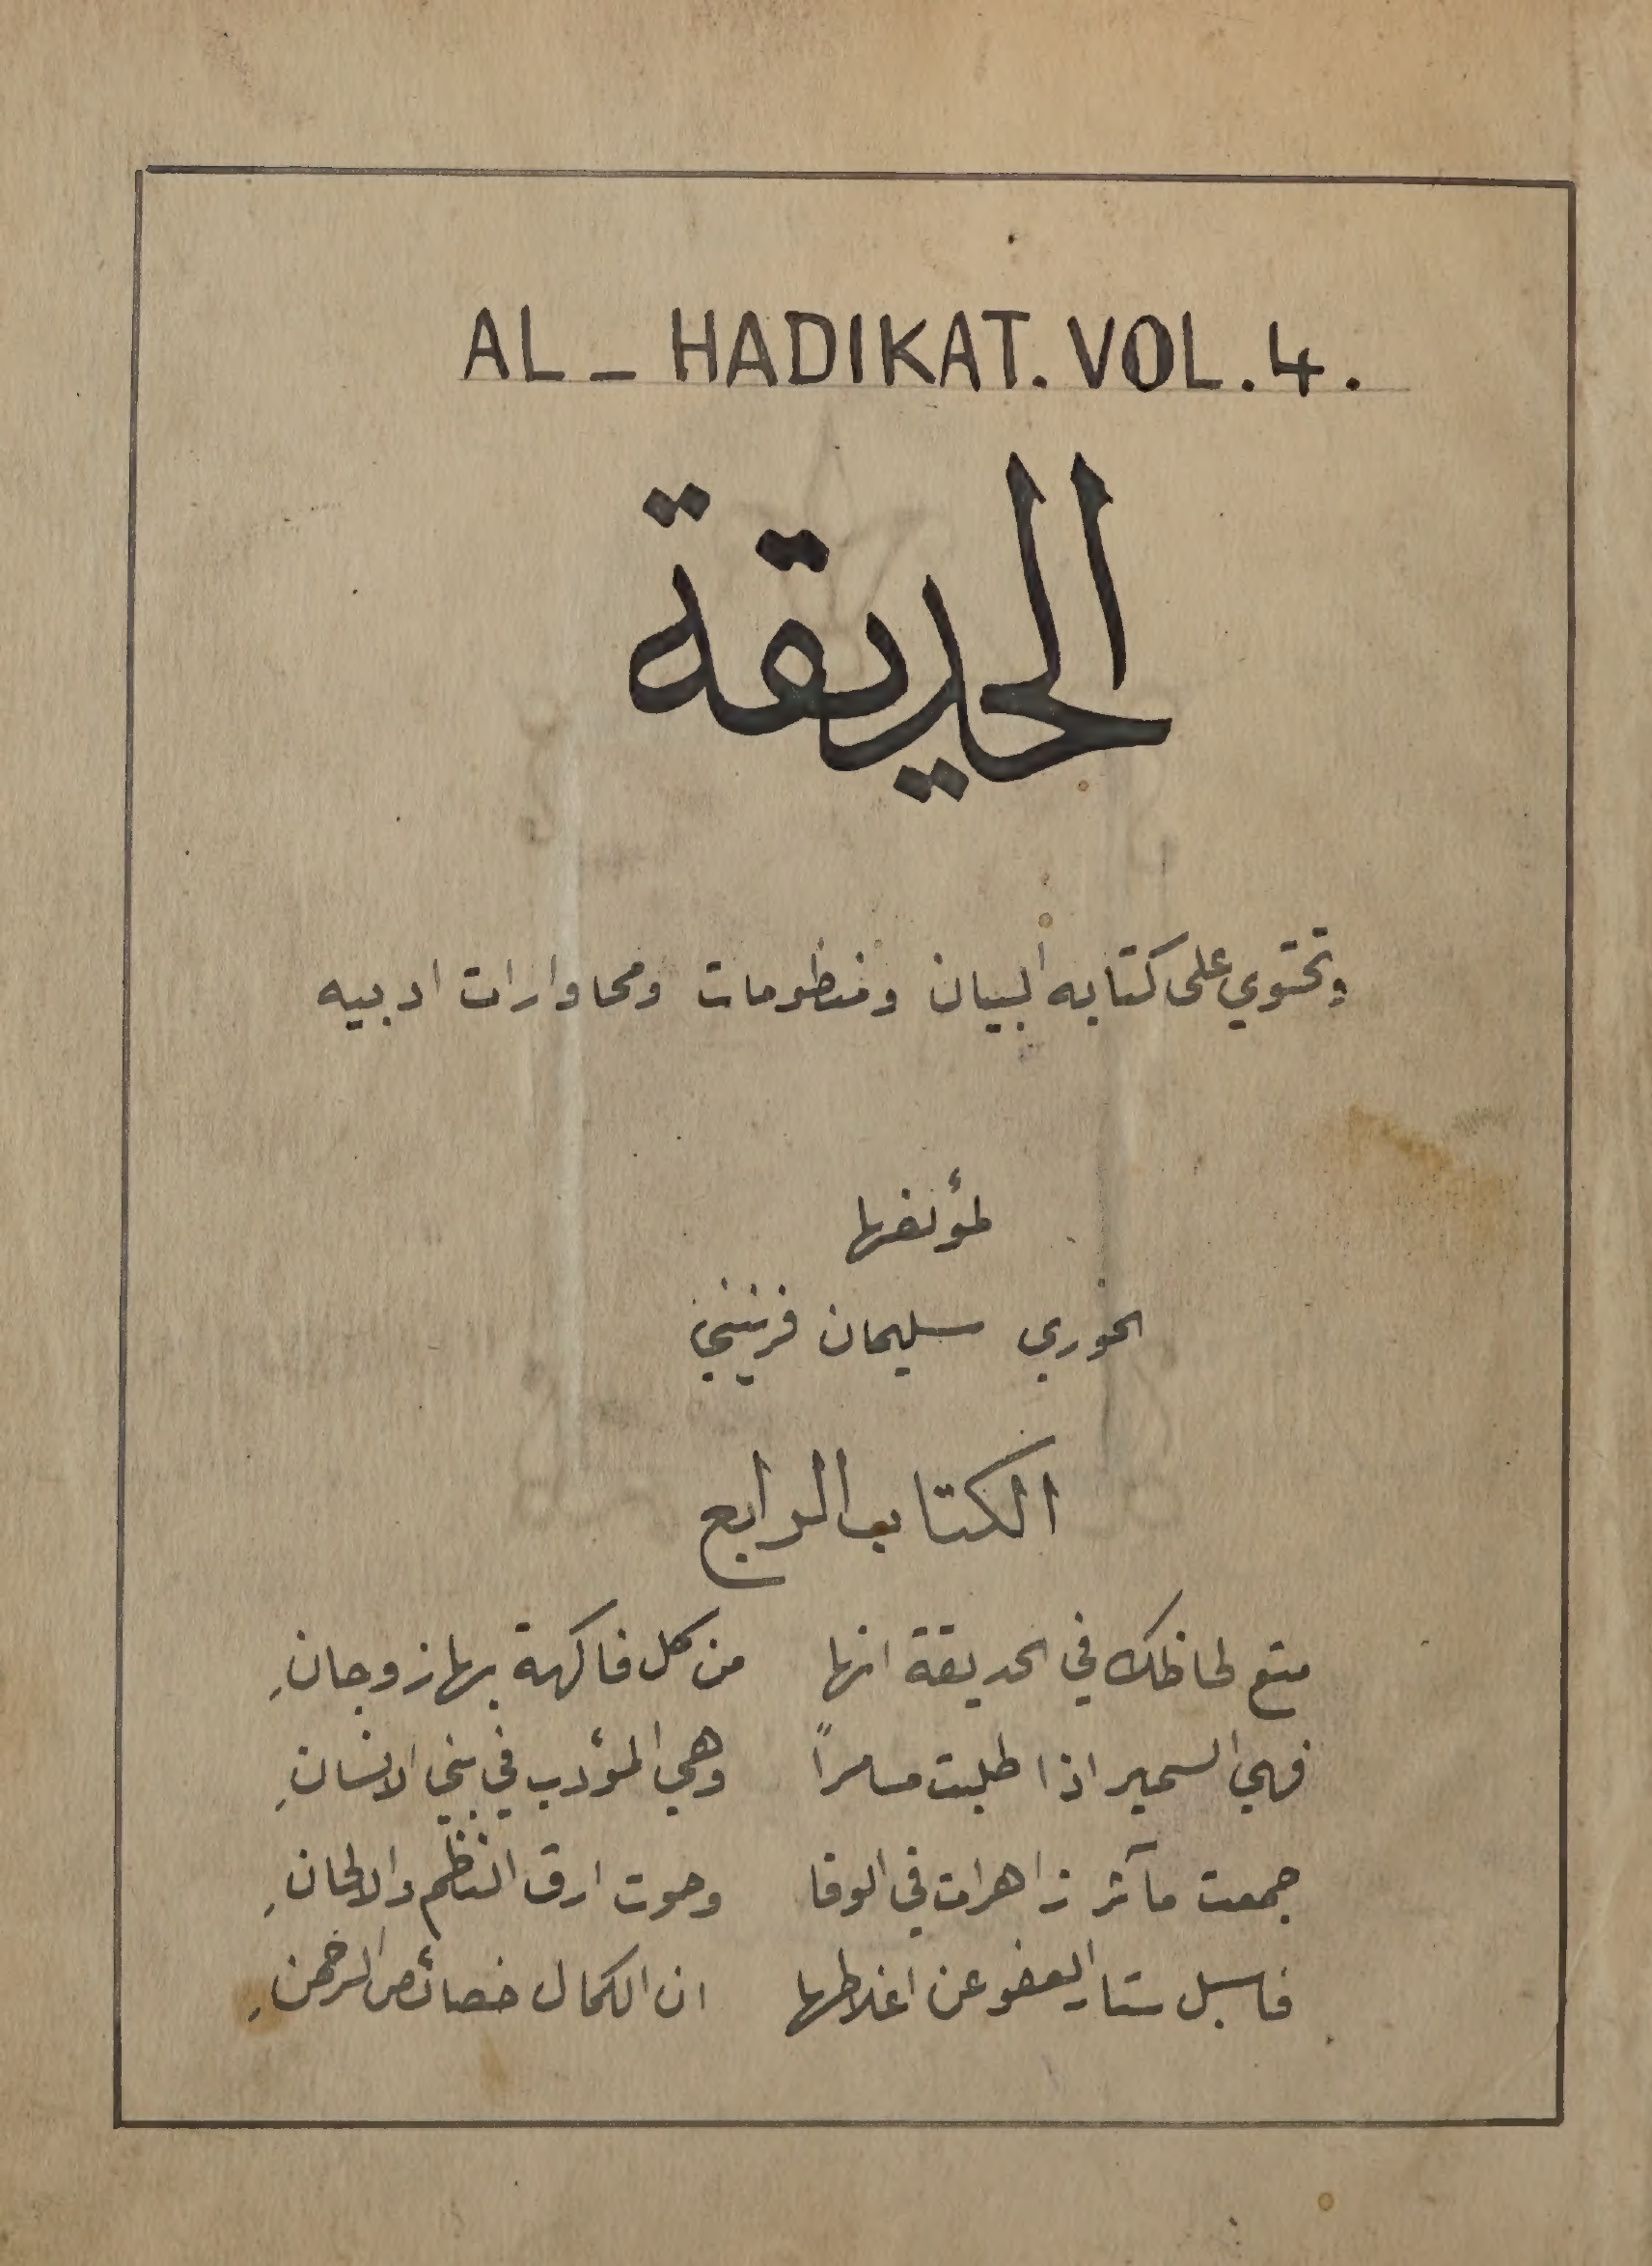 AL - HADIKAT. VOL. 4.
الحديقة
وتحتوي على كتابه البيان ومنظومات ومحاوارات ادبيه
لمؤلفها
الخوري سليمان فرنيني
الكتاب الرابع
متع لحاظك في الحديقة انها من كل فاكهة بها زوجانِ
فهي السمير اذا طلبت مسامراً وهي المؤدب في بني الانسانِ
جمعت مآثر زاهرات في الوفا وحوت ارق النظم والالحانِ
فاسبل ستار العفو عن اغلاطها ان الكمال خصائص الرحمنِ